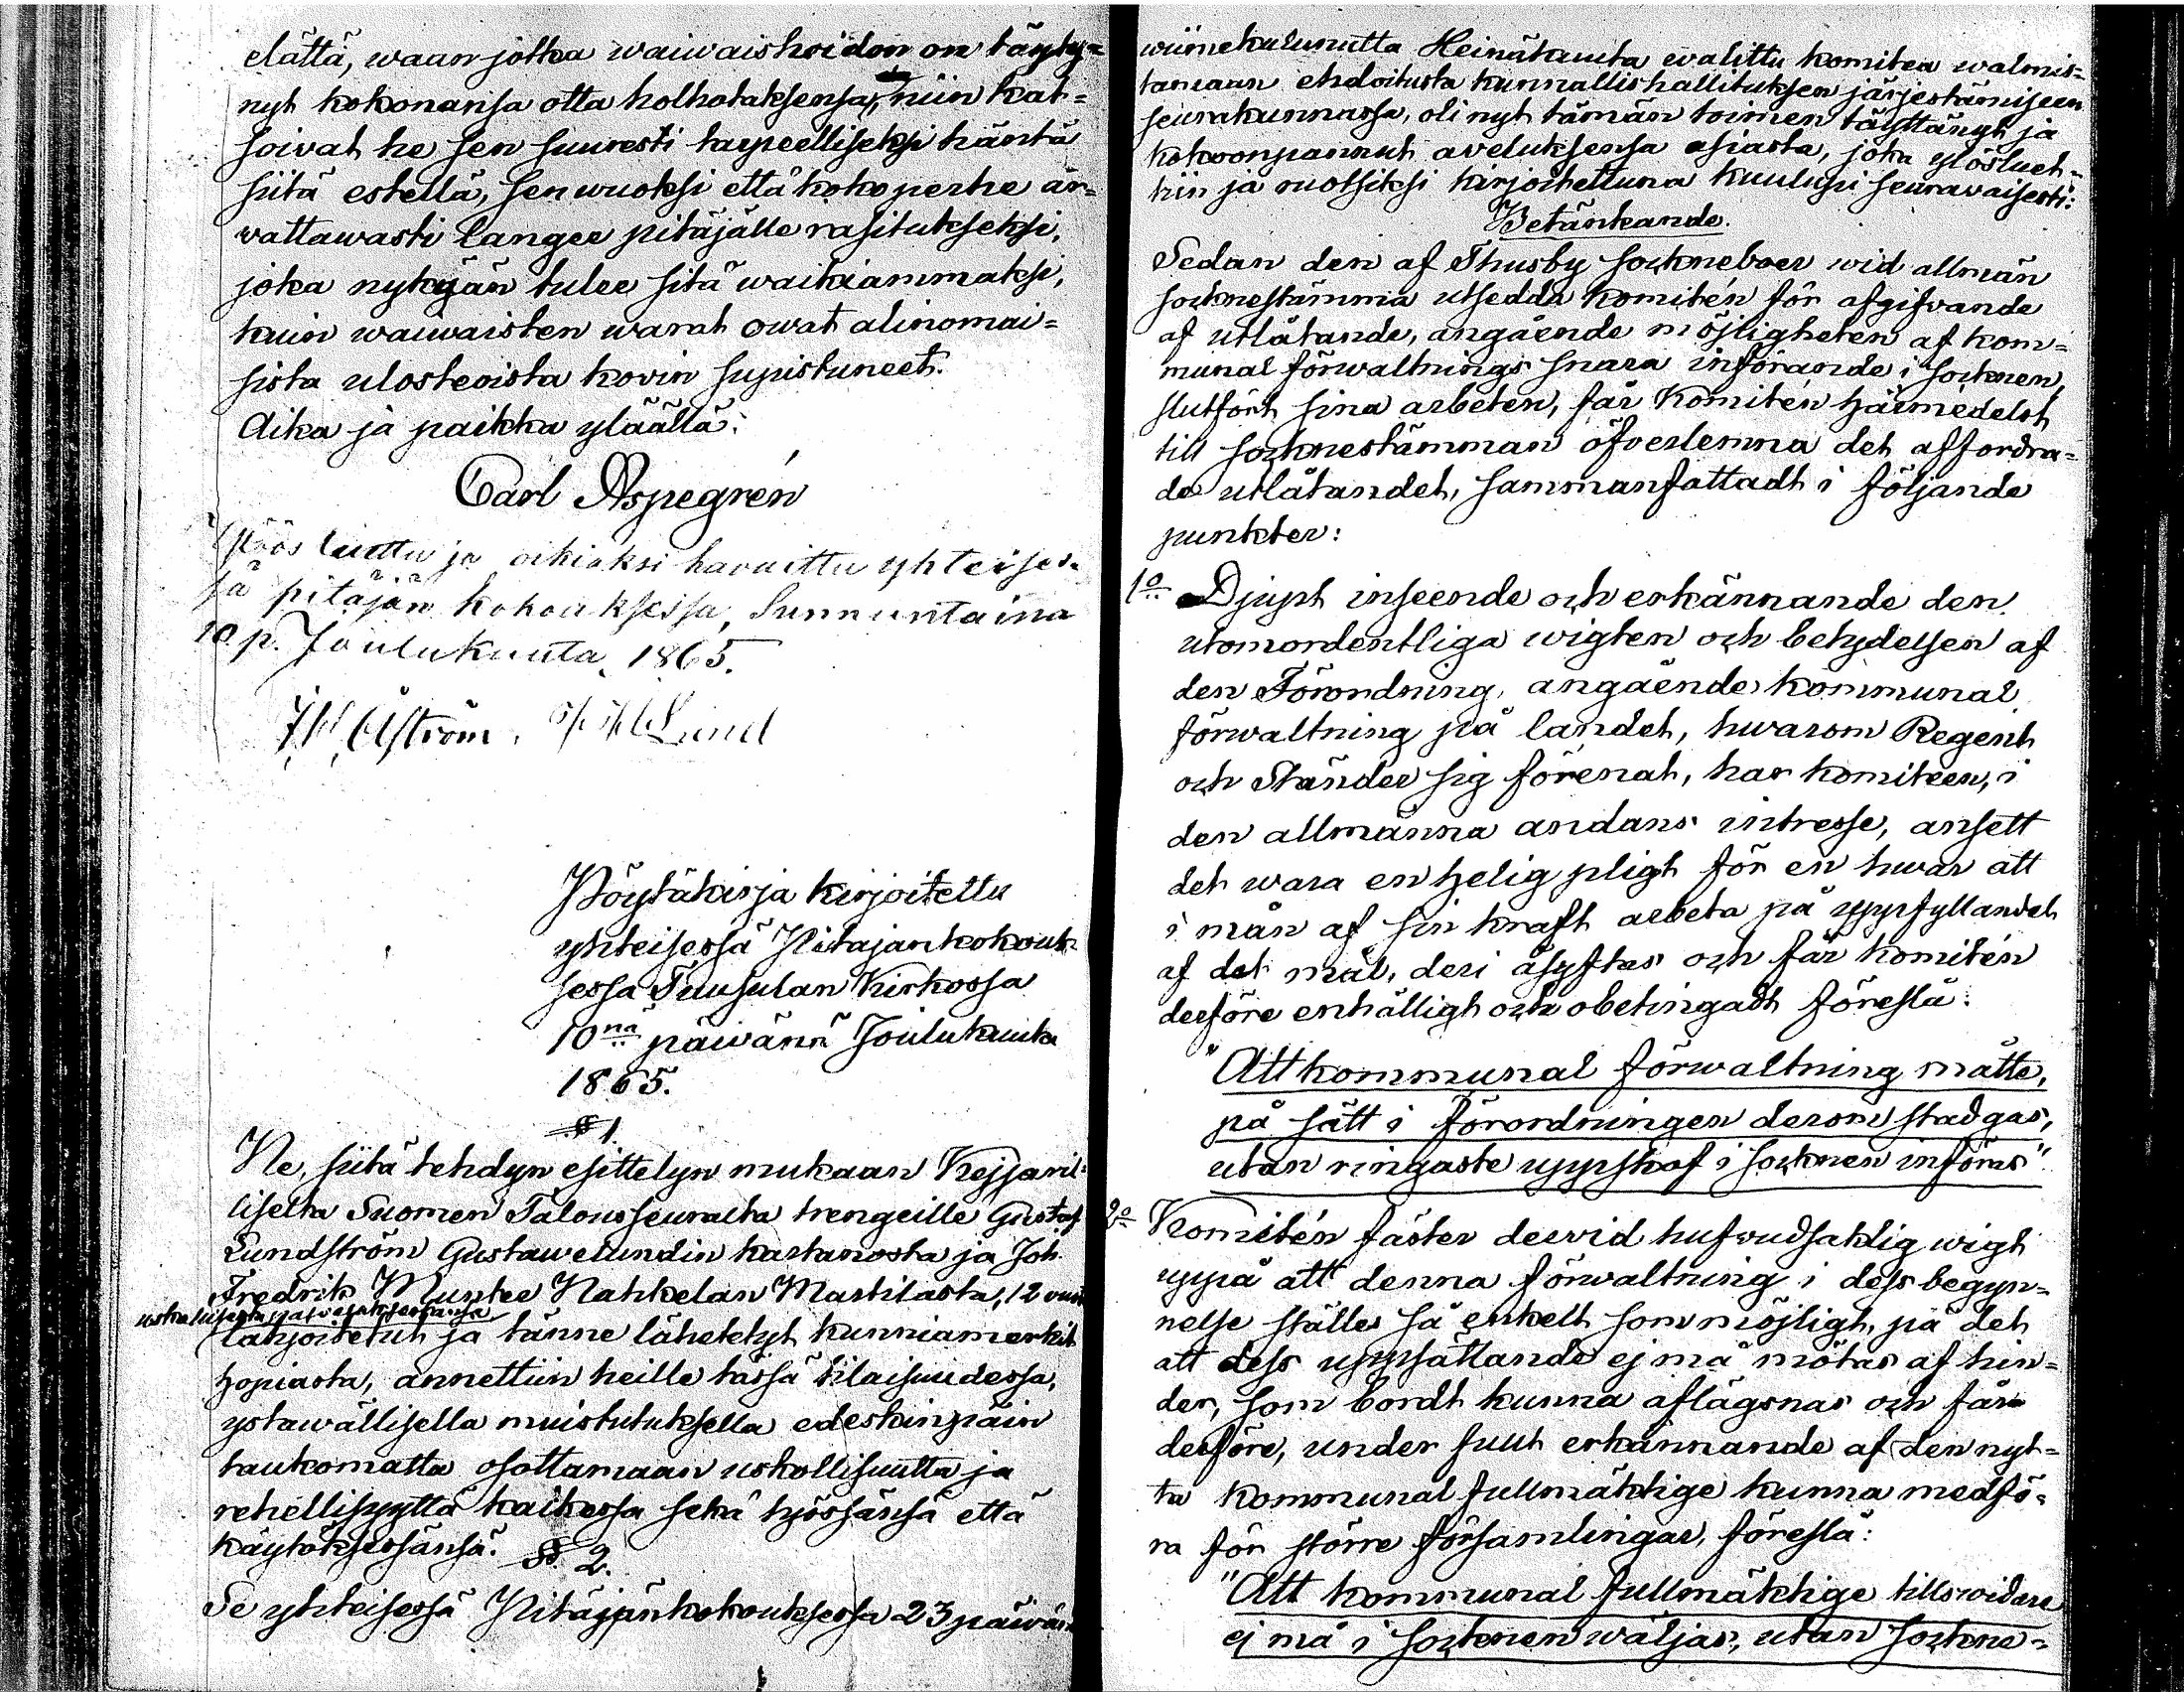 elättä, waan jotka waiwaishoidon on täyty=
nyt kokonansa otta holhotaksensa, niin kat=
soivat he sen suuresti tarpeelliseksi häntä
siitä estellä, sen wuoksi että koko perhe ar=
vattawasti langee pitäjälle rasitukseksi,
joka nykyjän tulee sitä waikiammaksi,
kuin waiwaisten warat owat alinomai=
sista ulosteoista kovin supistuneet.
Aika ja paikka yläällä:
Carl Aspegrén
Ylöös luettu ja oikiaksi havaittu yhteises=
sä pitäjän kokouksessa, Sunnuntaina
10 p. Joulukuuta 1865.
Åström. Lund
Pöytäkirja kirjoitettu
yhteisessä Pitäjänkokouk=
sessa Tuusulan Kirkossa
10na päiwänä Joulukuuta
1865.
§ 1.
Ne, siitä tehdyn esittelyn mukaan Kejsaril=
liselta Suomen Talousseuralta trengeille Gustaf
Lundström Gustawelundin kartanosta ja Joh.
Fredrik Muntee Nahkelan Marskilasta, 12 vuo
uskollisesta palveluksestansa
lahjoitetut ja tänne lähetetyt kunniamerkit
hopiasta, annettiin heille tässä tilaisuudessa,
ystawällisellä muistutuksella edeskinpäin
taukomatta osottamaan uskollisuutta ja
rehellisyyttä kaikessa sekä työssänsä että
käytöksessänsä.
§ 2.
Se yhteisessä Pitäjänkokouksessa 23 päiwän
wiimekulunutta Heinäkuuta walittu komitea walmis=
tamaan ehdoitusta kunnallishallituksen järjestämiseen
seurakunnassa, oli nyt tämän toimen täyttänyt ja
kokoonpannut aveluksensa asiasta, joka ylösluet=
tiin ja ruotsiksi kirjoitettuna kuului seuravaisesti:
Betänkande.
Sedan den af Thusby sockneboer wid allmän
socknestämma utsedda Komitén för afgifvande
af utlåtande, angående möjligheten af kom=
munal förwaltnings snara införande i socknen,
slutfört sina arbeten, får Komitén härmedelst
till socknestämman öfverlemna det affordra=
de utlåtandet, sammanfattadt i följande
punkter:
1o Djupt inseende och erkännande den
utomordentliga wigten och betydelsen af
den Förordning, angående kommunal
förwaltning på landet, hwarom Regent
och Ständer sig förenat, har komiteen, i
den allmänna andans intresse, ansett
det wara en helig pligt för en hwar att
i mån af sin kraft arbeta på uppfyllandet
af det mål, deri åsyftas och får komitén
derföre enhälligt och obetingadt föreslå:
"Att kommunal förwaltning måtte,
på sätt i förordningen derom stadgas,
utan ringaste uppskof i socknen införas".
2o Komitén fäster dervid hufvudsaklig wigt
uppå att denna förwaltning i dess begyn=
nelse ställes så enkelt som möjligt, på det
att dess uppsättande ej må mötas af hin=
der, som bordt kunna aflägsnas och får
derföre, under fullt erkännande af den nyt=
ta Kommunal fullmäktige kunna medfö=
ra för större församlingar, föreslå:
"Att kommunal fullmäktige tillswidare
ej må i socknen wäljas, utan sockne=